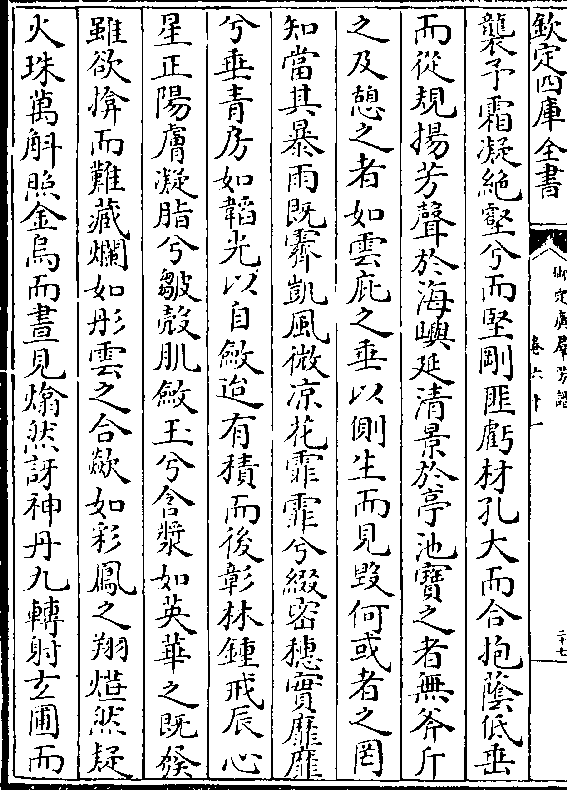 欽定四庫全書
御定廣羣芳譜
卷六十一
三十七
襲予霜凝絶壑兮而堅剛匪虧材孔大而合抱蔭低垂
而從規揚芳聲於海嶼延清景於亭池寶之者無斧斤
之及憩之者如雲庇之垂以側生而見毁何或者之罔
知當其暴雨既霽凱風微凉花霏霏兮綴密穗實靡靡
兮垂青房如韜光以自斂迨有積而後彰林鍾戒辰心
星正陽膚凝脂兮皺殼肌斂玉兮含漿如英華之既𠉀
雖欲揜而難藏爛如彤雲之合歘如彩鳳之翔爀然疑
火珠萬斛照金烏而晝見熻然訝神丹九轉射玄圃而